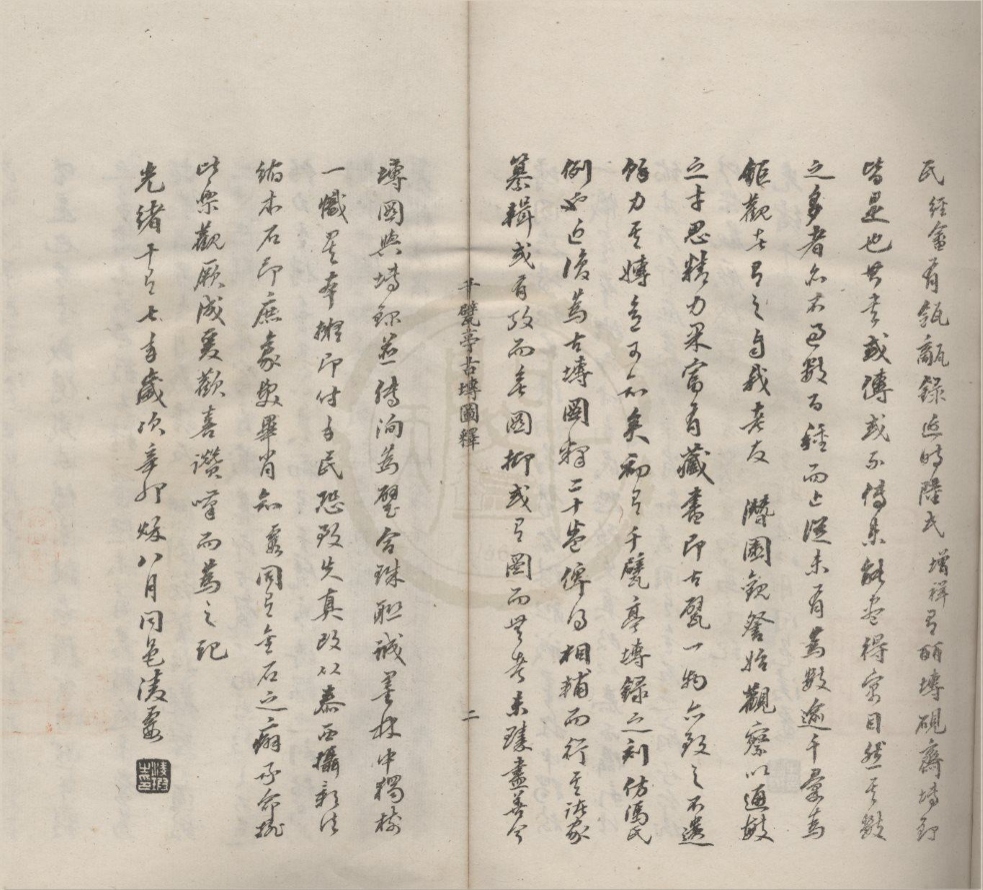 民經畬有瓴甋錄近時陸氏增祥有皕塼硯齋塼錄
皆是也其書或傳或不傳未能盡得寓目然其數
之多者亦不過數百種而止從未有蒐數逾千彙為
鉅觀者有之自我老友潛園觀詧始觀察以通敏
之才思精力果富有藏書即古甓一物亦致之不遺
餘力其媾立可知矣初有千甓亭塼錄之刻仿馮氏
例也近復為古塼圖釋二十卷俾得相輔而行其諸家
纂輯或有攷而無圖抑或有圖而無考未臻盡善今
千甓亭古塼圖釋
二
塼圖與塼錄並傳洵為璧合珠聯誠墨林中獨樹
一幟矣本擬即付手民恐致失真改以泰西攝影法
縮本石印庶豪髮畢肖知霞同有金石之癖承命撫
此樂觀厥成爰歡喜讚嘆而為之記
光緒十有七年歲次辛卯秋八月同邑淩霞